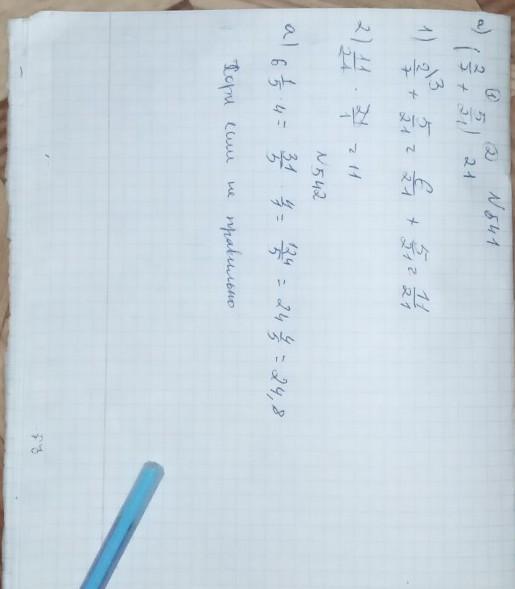 N 541
① ②
а) (2/7 + 5/21) · 21
1) 2/7\3 + 5/21 = 6/21 + 5/21 = 11/21
2) 11/21 · 21/1 = 11
N 542
а) 6 1/5 · 4 = 31/5 · 4/1 = 124/5 = 24 4/5 = 24,8
если не правильно